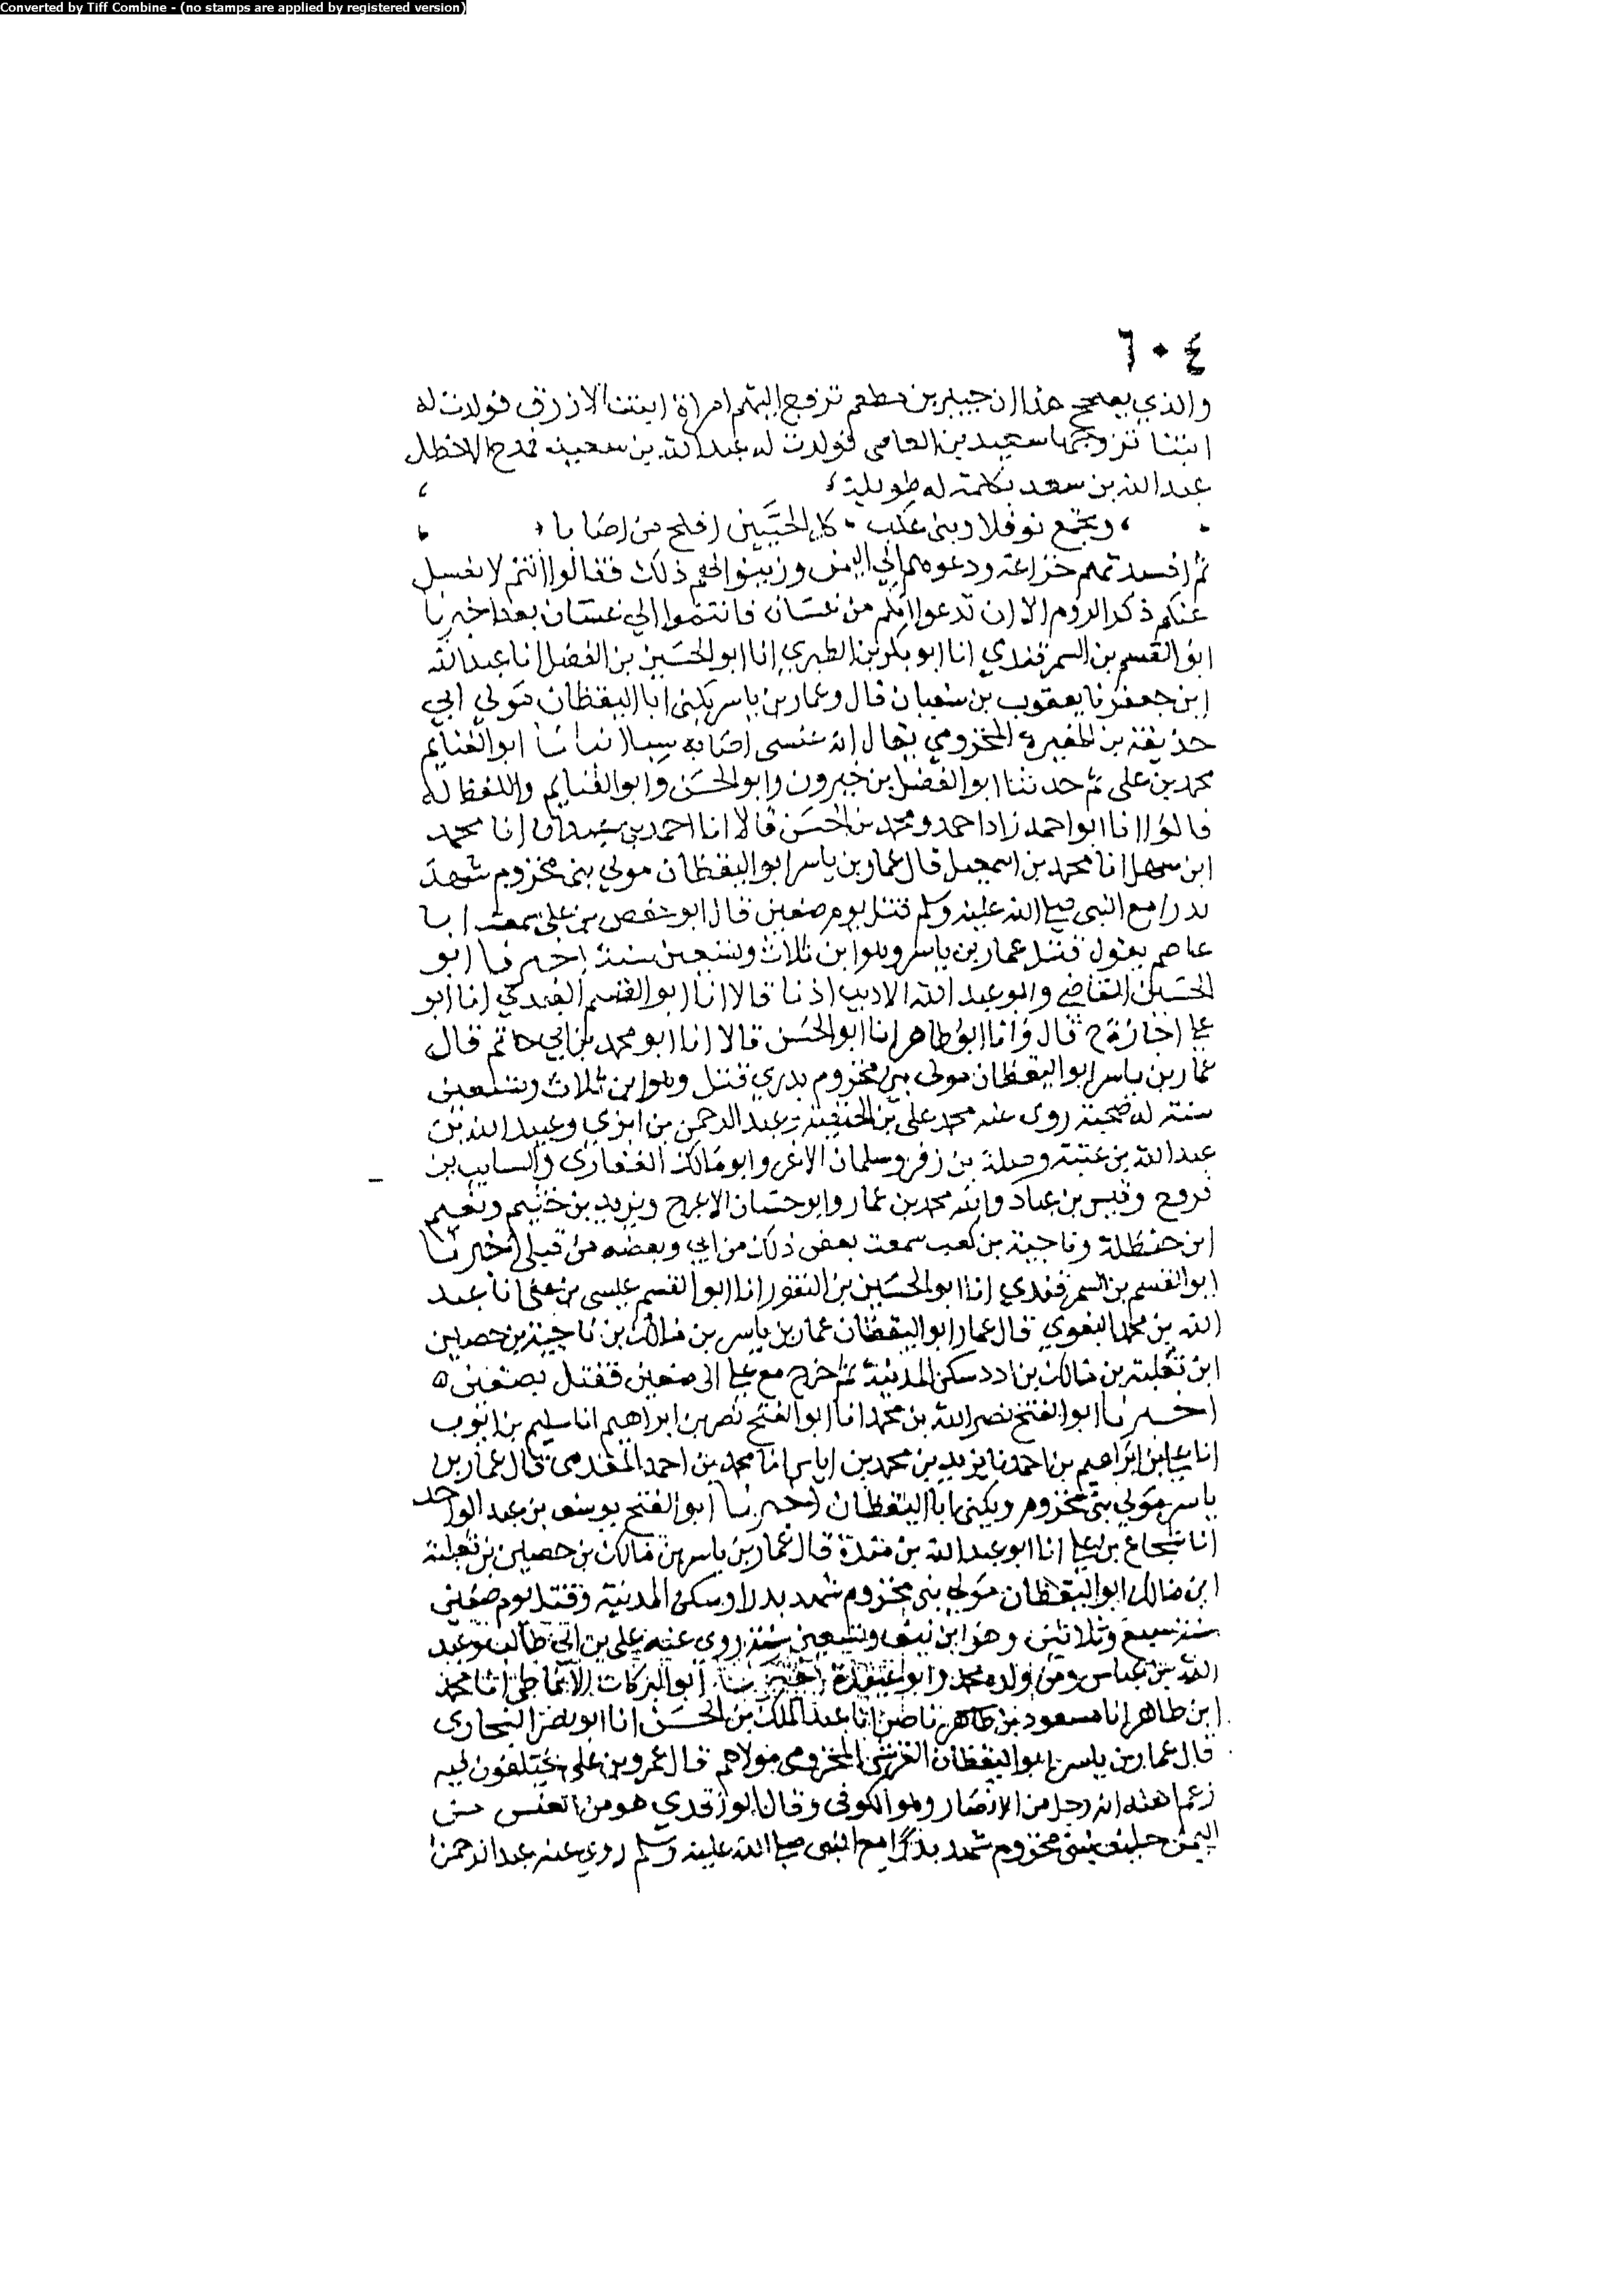 Converted by Tiff Combine - (no stamps are applied by registered version)
٦٠٤
والذي يصحح هذا ان جبير بن مطعم تزوج اليهم امراة ابنت الازرق فولدت له
ابنتا تزوجها سعيد بن العاص فولدت له عبد الله بن سعيد فمدح الاخطل
عبد الله بن سعد بكلمة له طويلة
وتجمع نوفلا وبني عكب كلا الحيين افلح من اصابا
ثم افسدتهم خزاعة ودعوهم الي اليمن وزينوا لهم ذلك فقالوا انتم لا يغسل
عنكم ذكر الروم الا ان تدعوا انكم من غسان فانتموا الي غسان بعد اخبرنا
ابو القسم بن السمرقندي انا ابو بكر بن الطبري انا ابو الحسين بن الفضل انا عبد الله
ابن جعفر نا يعقوب بن سفيان قال وعمار بن ياسر يكنى ابا اليقظان مولي ابي
حذيفة بن المغيرة المخزومي يقال انه عنسي اصابه سبا انبانا ابو الغنايم
محمد بن علي ثم حدثنا ابو الفضل بن خيرون وابو الحسن وابو الغنايم واللفظ له
قالوا انا ابو احمد زاد احمد ومحمد بن الحسن قالا انا احمد بن عبدان انا محمد
ابن سهل انا محمد بن اسمعيل قال عمار بن ياسر ابو اليقظان مولي بني مخزوم شهد
بدرا مع النبي صلى الله عليه وسلم قتل يوم صفين قال ابو حفص بن علي سمعت ابا
عاصم يقول قتل عمار بن ياسر وهو ابن ثلاث وتسعين سنة اخبرنا ابو
الحسين القاضي وابو عبد الله الاديب اذنا قالا انا ابو القسم العبدي انا ابو
علي اجازة ح قال وانا ابو طاهر انا ابو الحسن قالا انا ابو محمد بن ابي حاتم قال
عمار بن ياسر ابو اليقظان مولى بني مخزوم بدري قتل وهو ابن ثلاث وتسعين
سنة له صحبة روى عنه محمد علي بن الحنفية وعبد الرحمن بن ابزي وعبيد الله بن
عبد الله بن عتبة وصلة بن زفر وسلمان الاغر وابو مالك الغفاري والسايب بن
فروخ وقيس بن عباد وابنه محمد بن عمار وابو حسان الاعرج ويزيد بن خثيم ونعيم
ابن حنظلة وناجية بن كعب سمعت بعض ذلك من ابي وبعضه من قبلي اخبرنا
ابو القسم بن السمرقندي انا ابو الحسين بن النقور انا ابو القسم عيسى بن علي انا عبد
الله بن محمد البغوي قال عمار ابو اليقظان عمار بن ياسر بن مالك بن ناجية بن حصين
ابن ثعلبة بن مالك بن ادد سكن المدينة ثم خرج مع علي الى صفين فقتل بصفين ه
اخبرنا ابو الفتح نصر الله بن محمد انا ابو الفتح نصر بن ابراهيم انا سليم بن ايوب
انا علي بن ابراهيم بن احمد نا يزيد بن محمد بن اياس انا محمد بن احمد المقدمي قال عمار بن
ياسر مولي بني مخزوم ويكنى ابا اليقظان اخبرنا ابو الفتح يوسف بن عبد الواحد
انا شجاع بن علي انا ابو عبد الله بن مندة قال عمار بن ياسر بن مالك بن حصين بن ثعلبة
ابن مالك ابو اليقظان مولي بني مخزوم شهد بدرا وسكن المدينة وقتل يوم صفين
سنة سبع وثلاثين وهو ابن نيف وتسعين سنة روى عنه علي بن ابي طالب وعبد
الله بن عباس ومن ولده محمد وابو عبيدة اخبرنا ابو البركات الانماطي انا محمد
ابن طاهر انا مسعود بن ناصر انا عبد الملك بن الحسن انا ابو نصر البخاري
قال عمار بن ياسر ابو اليقظان القرشي المخزومي مولاهم قال عمرو بن علي يختلفون فيه
زعم انه رجل من الانصار وهو الكوفي وقال الواقدي هو من عنس من
اليمن حليف بني مخزوم شهد بدرا مع النبي صلى الله عليه وسلم روى عنه عبد الرحمن